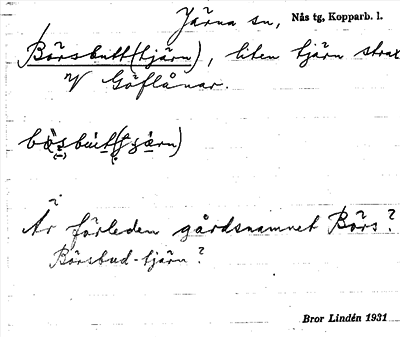 Järna sn, Nås tg, Kopparb. l.
Börsbutt(tjärn), liten tjärn strax
V Göflånar.
Är förleden gårdsnamnet Börs?
Börsbud-tjärn?
Bror Lindén 1931